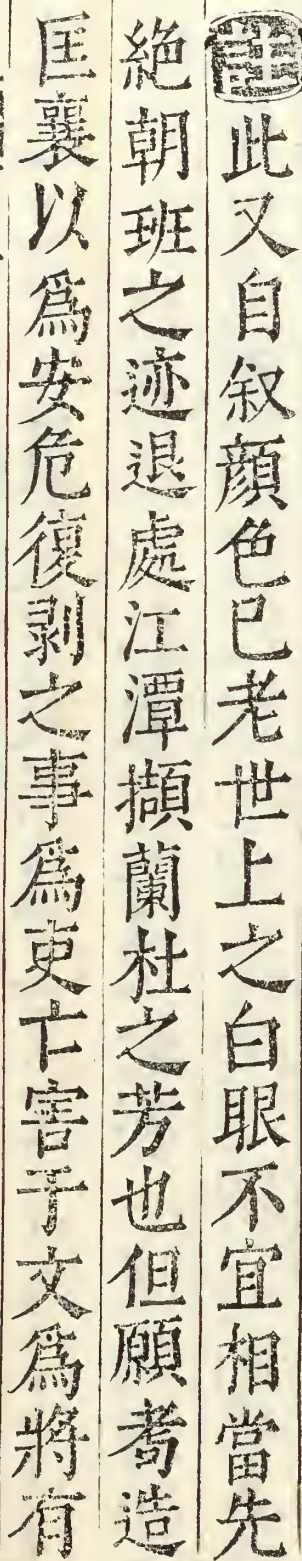 此又自叙顔色已老世上之白眼不宜相當先
絶朝班之迹退處江潭擷蘭杜之芳也但願耇造
匡襄以爲安危復剥之事爲吏亡害于文爲將有